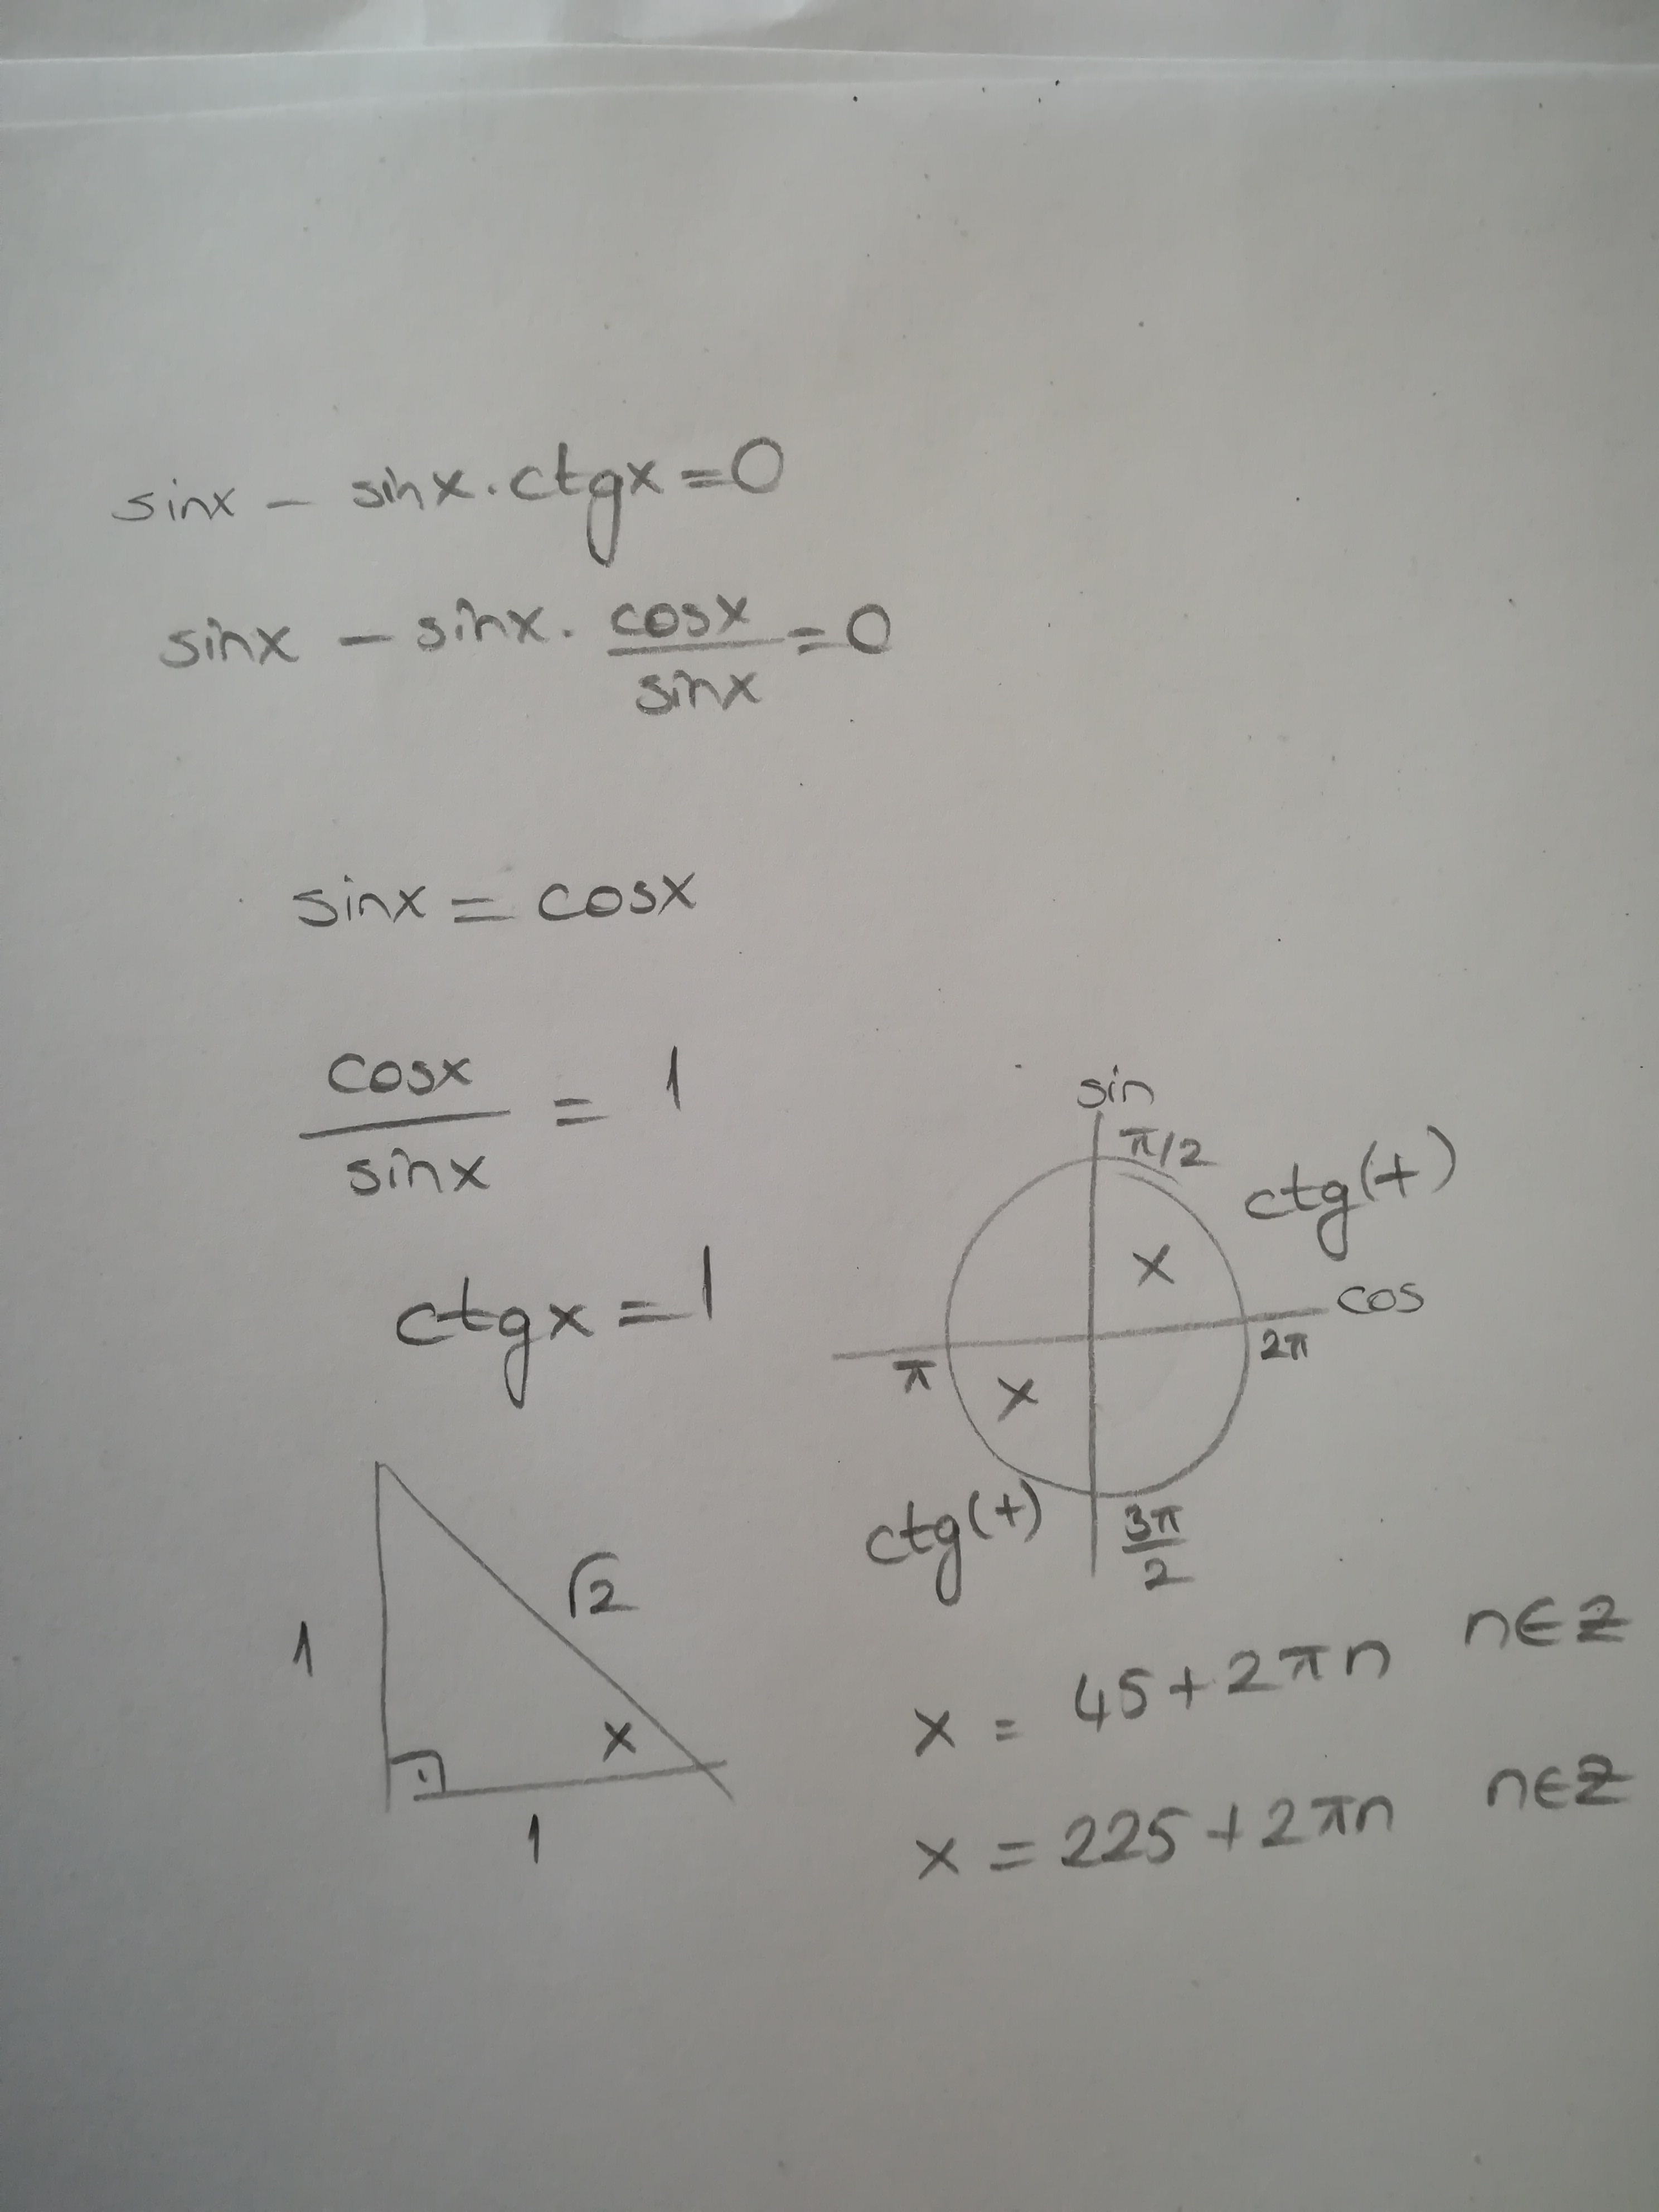 sinx - sinx.ctgx=0
sinx - sinx. cosx/sinx =0
sinx = cosx
cosx/sinx = 1
ctgx=1
sin
π/2
ctg(+)
x
cos
2π
π
x
ctg(+)
3π/2
√2
1
x
1
x = 45+2πn n∈Z
x = 225+2πn n∈Z